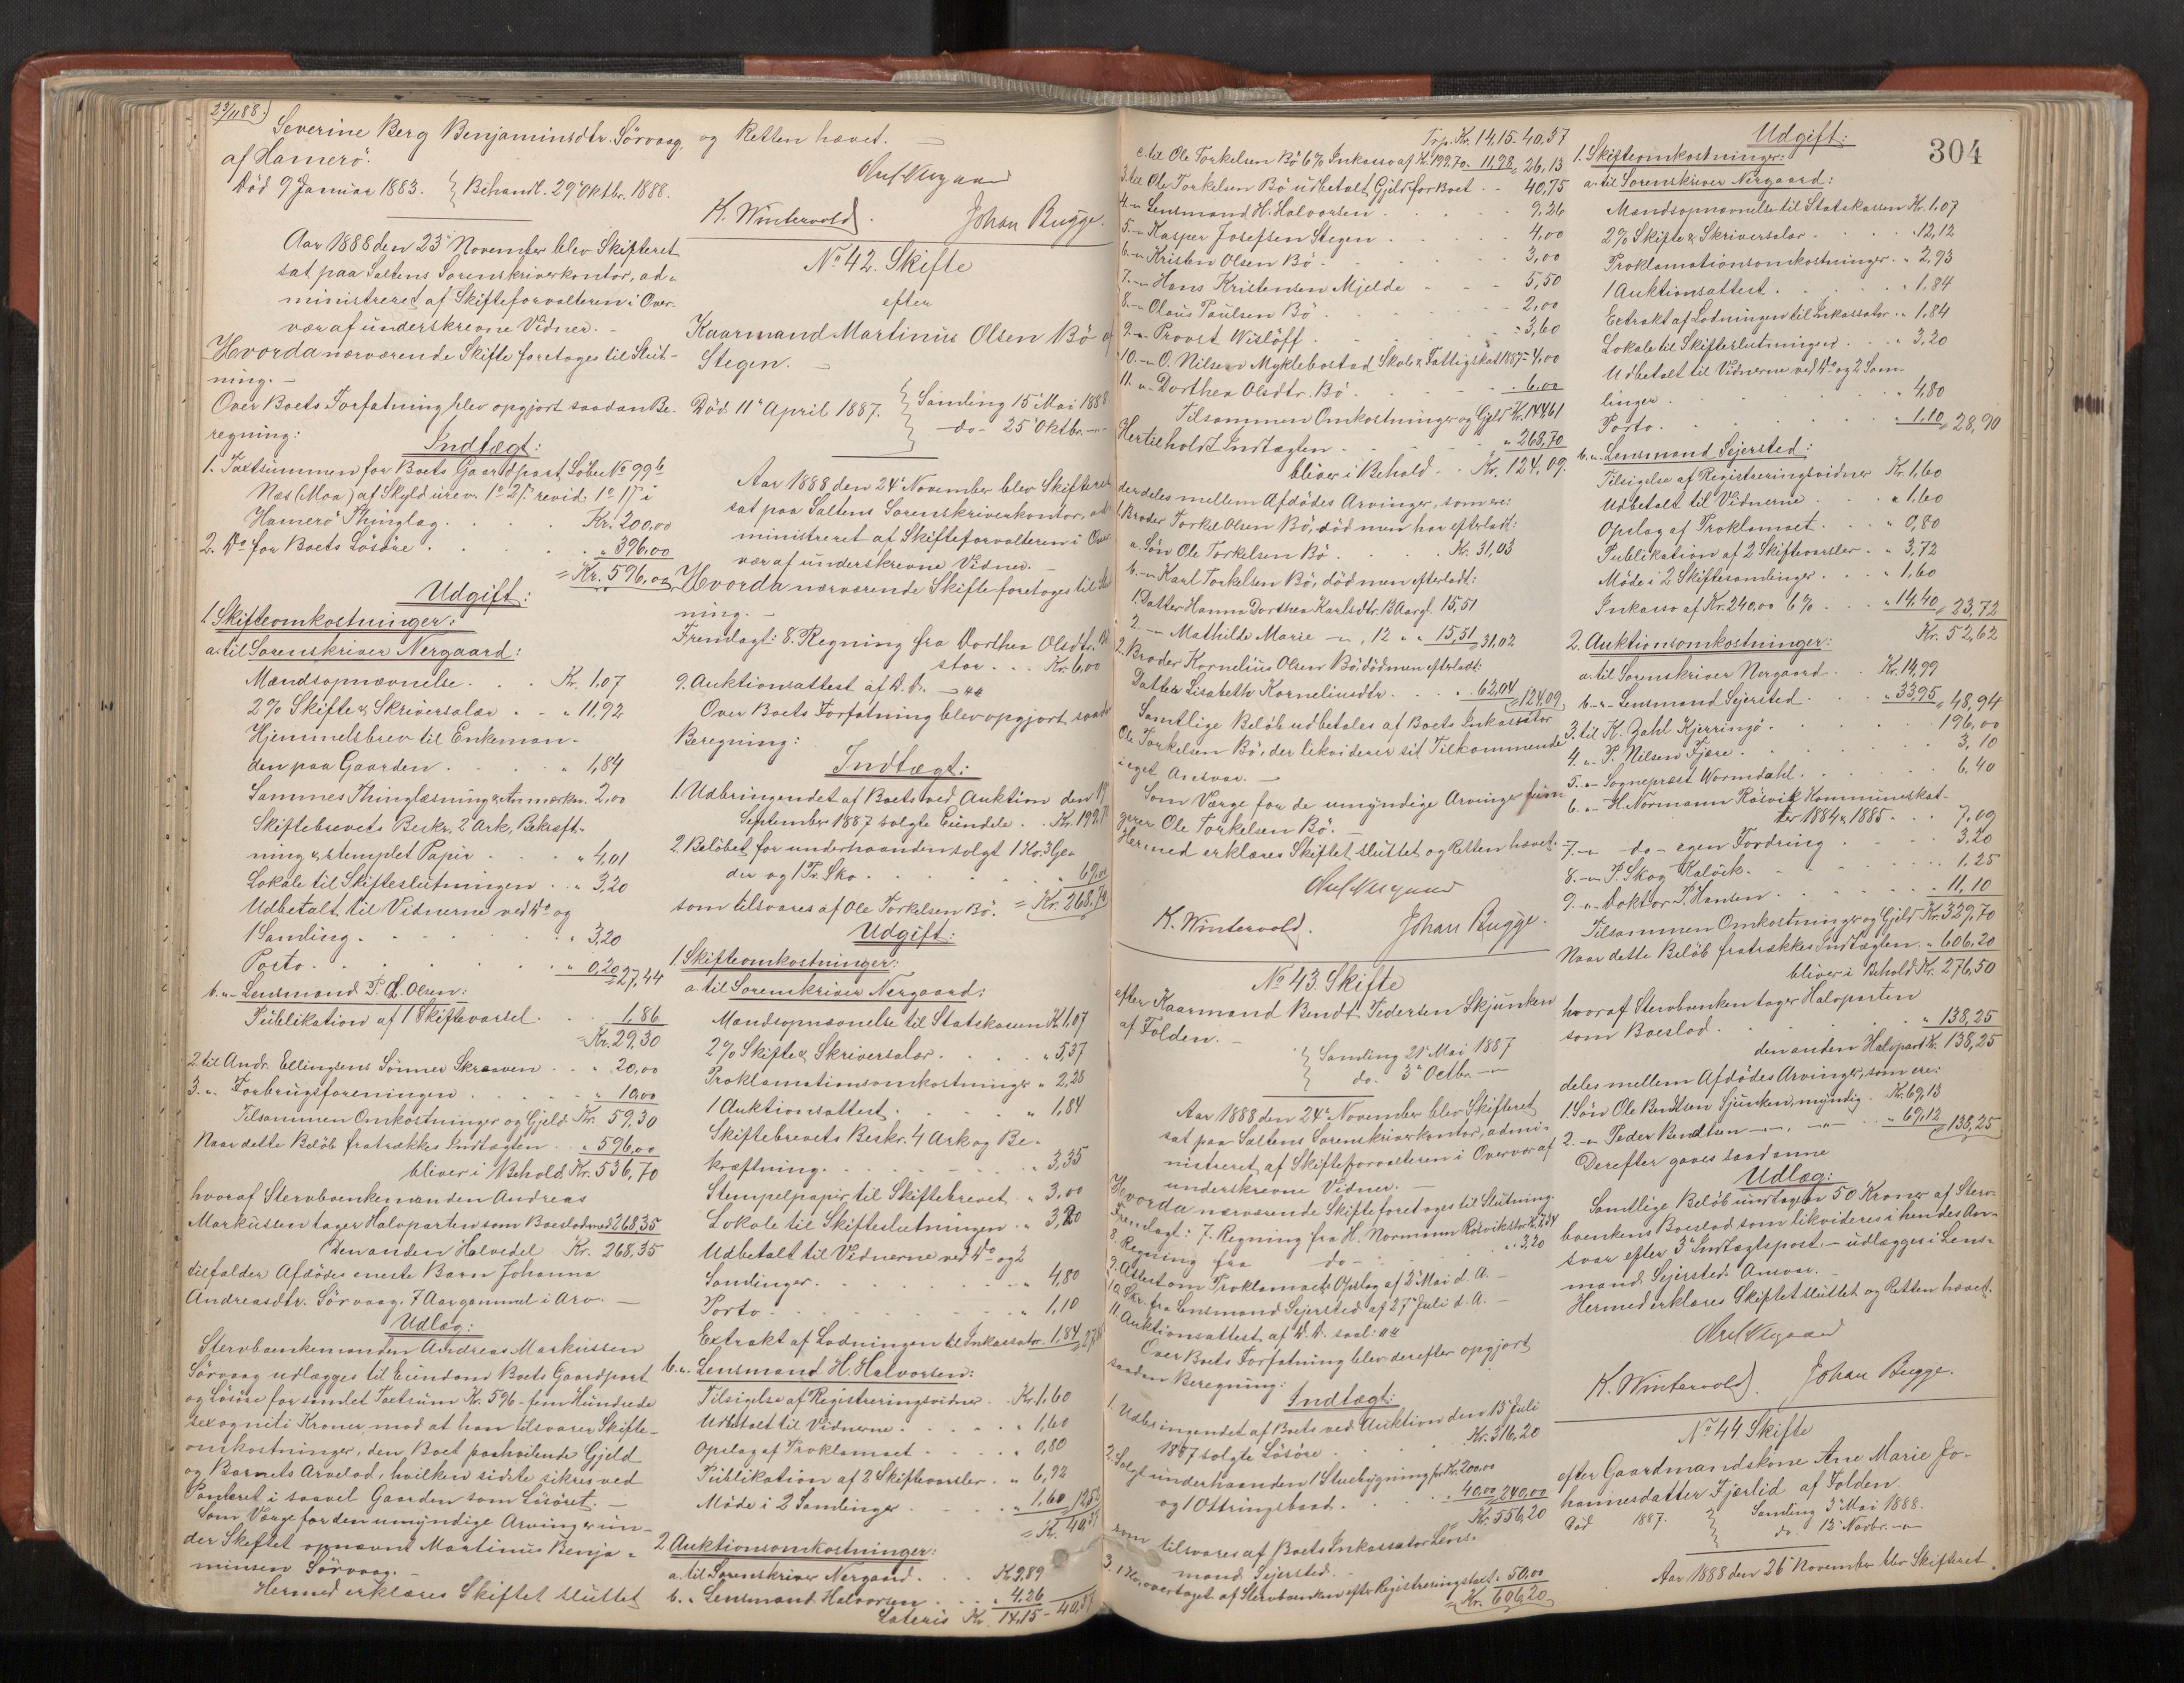 23/11 88.)
Severine Berg Benjaminsdtr. Sörvaag,
af Hamerö.
Död 9 Januar 1883. } Behandl. 29' Oktbr. 1888.
Aar 1888 den 23' November blev Skifteret
sat paa Saltens Sorenskriverkontor, ad-
ministreret af Skifteforvalteren i Over-
vær af underskrevne Vidner. -
Hvorda nærværende Skifte foretoges til Slut-
ning. -
Over Boets Forfatning blev opgjort saadan Be-
regning:
Indtægt:
1. Taxtsummen for Boets Gaardpart, Löbe No 99b
Næs (Moa) af Skyld urev. 1o 2/5 revid. 1o 1/5 i
Hamerö Thinglag . . . Kr. 200,00
2. Do for Boets Lösöre . . . " 396,00
= Kr. 596,00
Udgift:
1. Skifteomkostninger:
a. til Sorenskriver Nergaard:
Mandsopnævnelse . . . Kr. 1,07
2% Skifte & Skriversalær . . " 11,92
Hjemmelsbrev til Enkeman-
den paa Gaarden . . . " 1,84
Sammes Thinglæsning & Anmærkn. 2,00
Skiftebrevets Beskr., 2 Ark, Bekræft-
ning & stemplet Papir . . " 4,01
Lokale til Skifteslutningen . . " 3,20
Udbetalt til Vidnerne ved Do og
1 Samling . . . " 3,20
Porto . . . " 0,20 = 27,44
b. "- Lensmand P. L. Olsen:
Publikation af 1 Skiftevarsel . . 1,86
= Kr. 29,30
2. til Andr. Ellingsens Sönner Skraaven . . " 20,00
3. "- Forbrugsforeningen . . . " 10,00
Tilsammen Omkostninger og Gjeld Kr. 59,30
Naar dette Belöb fratrækkes Indtægten . . " 596,00
bliver i Behold Kr. 536,70
hvoraf Stervboenkemanden Andreas
Markussen tager Halvparten som Boeslod med 268,35
Den anden Halvedel Kr. 268,35
tilfalder Afdödes eneste Barn Johanna
Andreasdtr. Sörvaag, 7 Aar gammel i Arv. -
Udlæg:
Stervboenkemanden Andreas Markussen
Sörvaag udlægges til Eiendom Boets Gaardpart
og Lösöre for samlet Taxtsum Kr. 596 - fem Hundrede
sex og niti Kroner, mod at han tilsvarer Skifte-
omkostninger, den Boet paahvilende Gjeld
og Barnets Arvelod, hvilken sidste sikres ved
Panteret i saavel Gaarden som Lösöret. -
Som Værge for den umyndige Arving er un-
der Skiftet opnævnt Martinus Benja-
minsen Sörvaag. -
Hermed erklæres Skiftet sluttet
og Retten hævet. -
K. Wintervold. Johan Bugge.
No 42. Skifte
efter
Kaarmand Martinus Olsen Bö af
Stegen. -
Död 11' April 1887. } Samling 15' Mai 1888
do - 25' Oktbr. -"-
Aar 1888 den 24' November blev Skifteret
sat paa Saltens Sorenskriverkontor, ad-
ministreret af Skifteforvalteren i Over-
vær af underskrevne Vidner. -
Hvorda nærværende Skifte foretoges til Slut-
ning. -
Fremlagt: 8. Regning fra Dorthea Olsdtr. Bö
stor . . . Kr. 6,00
9. Auktionsattest af D. D.
Over Boets Forfatning blev opgjort saadan
Beregning:
Indtægt:
1. Udbringendet af Boets ved Auktion den 19
September 1887 solgte Eiendele . . Kr. 199,70
2. Belöbet for underhaanden solgt 1 Ko, 3 Gje-
der og 1 Pr. Sko . . . " 69,00
som tilsvares af Ole Torkelsen Bö. = Kr. 268,70
Udgift:
1. Skifteomkostninger:
a. til Sorenskriver Nergaard:
Mandsopnævnelse til Statskassen Kr. 1,07
2% Skifte & Skriversalær . . . " 5,37
Proklamationsomkostninger " 2,28
1 Auktionsattest . . . " 1,84
Skiftebrevets Beskr. 4 Ark og Be-
kræftning . . . " 3,35
Stempelpapir til Skiftebrevet . " 3,00
Lokale til Skifteslutningen . " 3,20
Udbetalt til Vidnerne ved Do og 2
Samlinger . . . " 4,80
Porto . . . " 1,10
Extrakt af Lodningen til Inkassator . 1,84
b. "- Lensmand H. Halvorsen:
Tilsigelse af Registreringsvidner . Kr. 1,60
Udbetalt til Vidnerne . . . " 1,60
Opslag af Proklamaet . . . " 0,80
Publikation af 2 Skiftevarsler . " 6,92
Möde i 2 Samlinger . . . " 1,60 12,52
= Kr. 40,37
2. Auktionsomkostninger:
a. til Sorenskriver Nergaard . . . Kr. 9,89
b. " Lensmand Halvorsen . . . " 4,26
Lateris Kr. 14,15 - 40,37
304
Trsp. Kr. 14,15 - 40,37
c. til Ole Torkelsen Bö 6% Inkasso af Kr. 199,70 . 11,98 = 26,13
3. til Ole Torkelsen Bö udbetalt Gjeld for Boet . . 40,75
4. "- Lensmand H. Halvorsen . . . 9,26
5. "- Kasper Josefsen Stegen . . . 4,00
6. "- Kristen Olsen Bö . . . 3,00
7. "- Hans Kristensen Mjelde . . . 5,50
8. "- Olaus Paulsen Bö . . . 2,00
9. "- Provst Wislöff . . . 3,60
10. "- O. Nilsen Myklebostad Skole & Fattigskat 1887 = 4,00
11. "- Dorthea Olsdtr. Bö . . . 6,00
Tilsammen Omkostninger og Gjeld Kr. 144,61
Hertil holdt Indtægten . . . " 268,70
bliver i Behold . . Kr. 124,09.
der deles mellem Afdödes Arvinger, som ere:
1. Broder Torkel Olsen Bö, död men har efterladt:
a. Sön Ole Torkelsen Bö . . . Kr. 31,03
b. "- Karl Torkelsen Bö, död men efterladt:
1. Datter Hanna Dorthea Karlsdtr. 13 Aar gl. 15,51
2. -"- Mathilde Marie -"-, 12 " " 15,51 = 31,02
2. Broder Kornelius Olsen Bö, död men efterladt:
Datter Lisabeth Korneliusdtr. . . . " 62,04 = 124,09
Samtlige Belöb udbetales af Boets Inkassator
Ole Torkelsen Bö, der likviderer sit Tilkommende
i eget Ansvar. -
Som Værge for de umyndige Arvinger fun-
gerer Ole Torkelsen Bö. -
Hermed erklæres Skiftet sluttet og Retten hævet. -
K. Wintervold. Johan Bugge.
No 43. Skifte
efter Kaarmand Bendt Pedersen Skjunken
af Folden. -
} Samling 21' Mai 1887
do. 3' Octbr. -"-
Aar 1888 den 24' November blev Skifteret
sat paa Saltens Sorenskriverkontor, admi-
nistreret af Skifteforvalteren i Overvær af
underskrevne Vidner. -
Hvorda nærværende Skifte foretoges til Slutning.
Fremlagt: 7. Regning fra H. Normann Rösvik stor Kr. 7,34
8. Regning fra do - . . " 3,20
9. Attest om Proklamaets Opslag af 2' Mai d. A. -
10. Skr. fra Lensmand Sejersted af 27' Juli d. A. -
11. Auktionsattest af D. D.
Over Boets Forfatning blev derefter opgjort
saadan Beregning:
Indtægt:
1. Udbringendet af Boets ved Auktion den 13' Juli
1887 solgte Lösöre . . . Kr. 316,20
2. Solgt underhaanden 1 Stuebygning for Kr. 200,00
og 1 Ottringsbaad . . . " 40,00 = 240,00
Kr. 556,20
som tilsvares af Boets Inkassator Lens-
mand Sejersted. -
3. 1 Ko, overtaget af Stervboenken efter Registreringstaxt . 50,00
= Kr. 606,20
Udgift:
1. Skifteomkostninger:
a. til Sorenskriver Nergaard:
Mandsopnævnelse til Statskassen Kr. 1,07
2% Skifte & Skriversalær . . . " 12,12
Proklamationsomkostninger . " 2,93
1 Auktionsattest . . . " 1,84
Extrakt af Lodningen til Inkassator . " 1,84
Lokale til Skifteslutningen . . . " 3,20
Udbetalt til Vidnerne ved Do og 2 Sam-
linger . . . " 4,80
Porto . . . " 1,10 = 28,90
b. "- Lensmand Sejersted:
Tilsigelse af Registreringsvidner Kr. 1,60
Udbetalt til Vidnerne . . . " 1,60
Opslag af Proklamaet . . . " 0,80
Publikation af 2 Skiftevarsler . " 3,72
Möde i 2 Skiftesamlinger . . . " 1,60
Inkasso af Kr. 240,00 6% . . . " 14,40 = 23,72
Kr. 52,62
2. Auktionsomkostninger:
a. til Sorenskriver Nergaard . . Kr. 14,99
b. -"- Lensmand Sejersted . . . " 33,95 = 48,94
3. til K. Zahl Kjerringö . . . 196,00
4. "- P. Nilsen Fjære . . . 3,10
5. "- Sogneprest Wormdahl . . . 6,40
6. "- H. Normann Rösvik Kommuneskat-
ter 1884 & 1885 . . . 7,09
7. "- do - egen Fordring . . . 3,20
8. "- P. Skog Kalvik . . . 1,25
9. "- Doktor P. Hansen . . . 11,10
Tilsammen Omkostninger og Gjeld Kr. 329,70
Naar dette Belöb fratrækkes Indtægten . " 606,20
bliver i Behold Kr. 276,50
hvoraf Stervboenken tager Halvparten
som Boeslod . . . " 138,25
den anden Halvpart Kr. 138,25
deles mellem Afdödes Arvinger, som ere:
1. Sön Ole Bendtsen Sjunken, myndig . Kr. 69,13
2. -"- Peder Bendtsen -"-, -"- . . " 69,12 = 138,25
Derefter gaves saadanne
Udlæg:
Samtlige Belöb undtagen 50 Kroner af Sterv-
boenkens Boeslod som likvideres i hendes An-
svar efter 3' Indtægtspost, - udlægges i Lens-
mand Sejersteds Ansvar. -
Hermed erklæres Skiftet sluttet og Retten hævet.
K. Wintervold. Johan Bugge.
No 44 Skifte
efter Gaardmandskone Ane Marie Jo-
hannesdatter Fjærlid af Folden.
Död 1887. } Samling 3' Mai 1888.
do. 13' Novbr. -"-
Aar 1888 den 26' November blev Skifteret